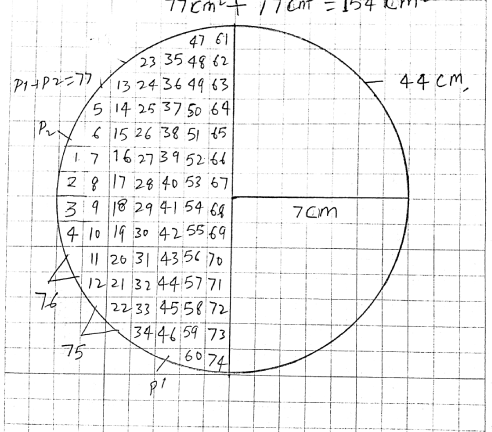 77cm² + 77cm² = 154 cm²
47 61
23 35 48 62
P1+P2=77 13 24 36 49 63
44 cm,
5 14 25 37 50 64
P2 6 15 26 38 51 65
1 7 16 27 39 52 66
2 8 17 28 40 53 67
3 9 18 29 41 54 68
7cm
4 10 19 30 42 55 69
11 20 31 43 56 70
76 12 21 32 44 57 71
22 33 45 58 72
75 34 46 59 73
60 74
P1